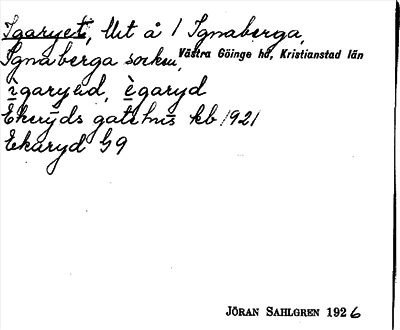 Igaryet, Ut å 1 Ignaberga,
Ignaberga socken, Västra Göinge hd, Kristianstad län
ìgaryd, ègaryd
Ekeryds gatehus kb 1921
Ekaryd G9
JÖRAN SAHLGREN 1926